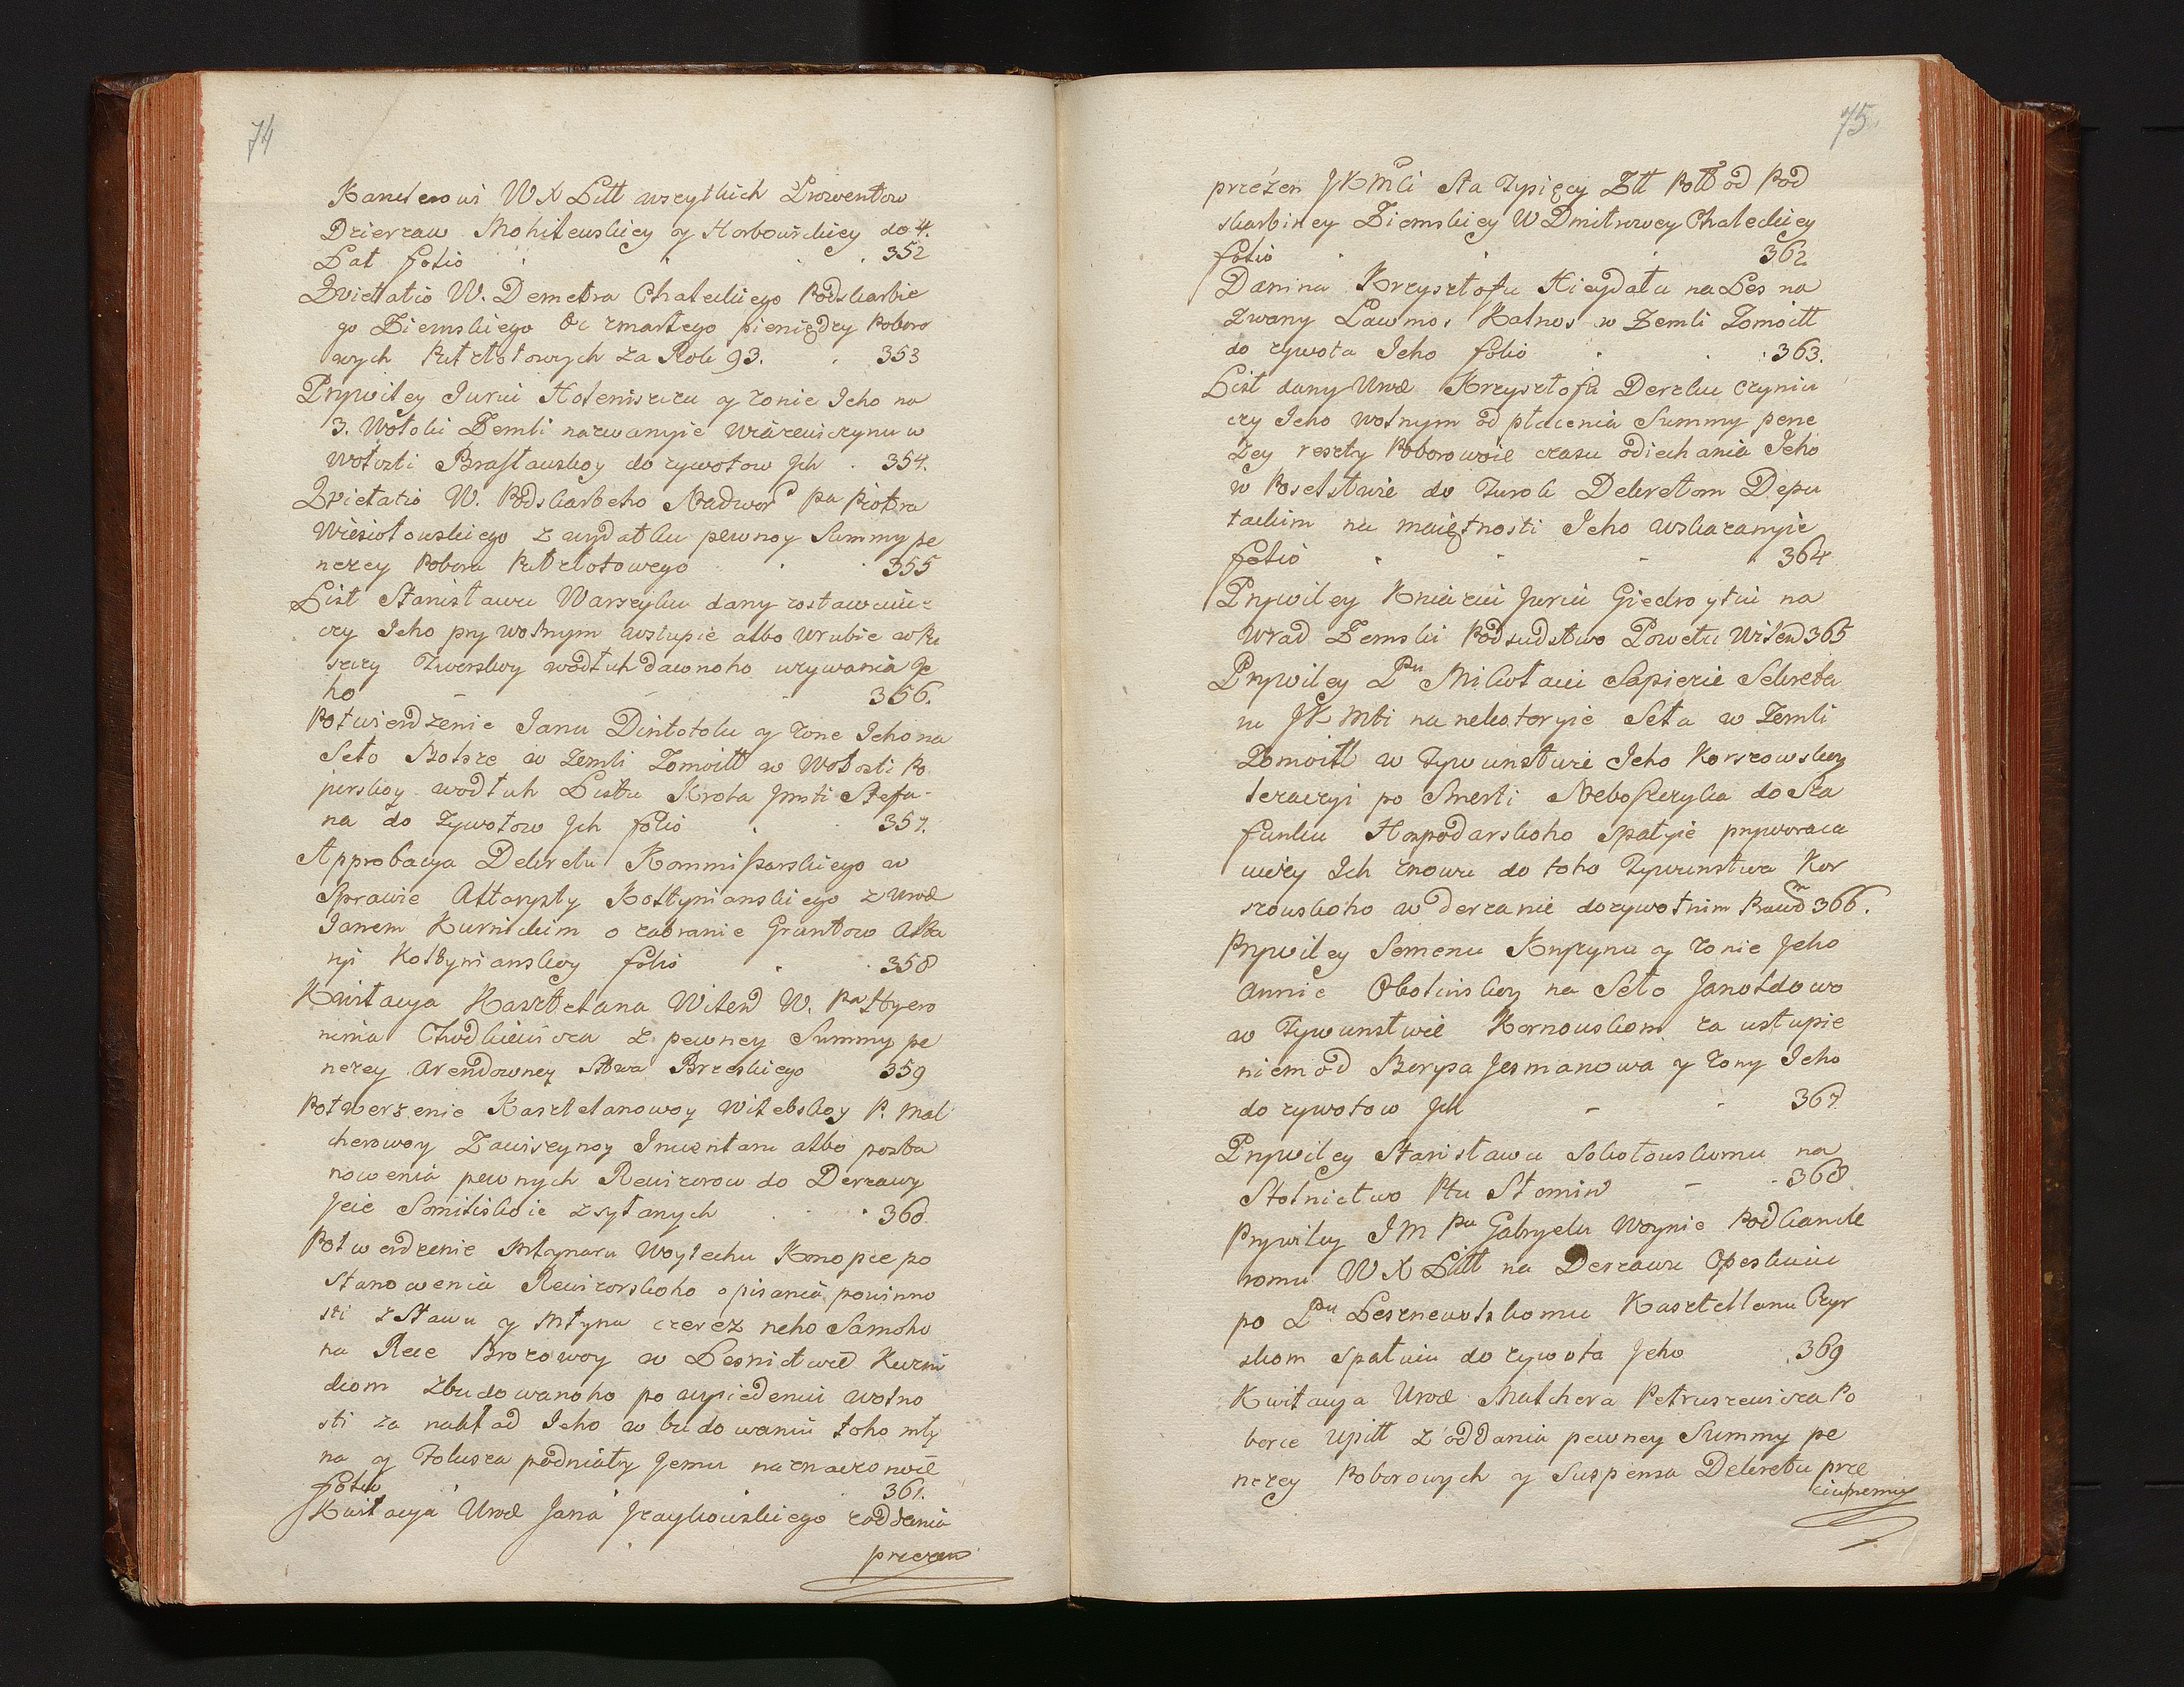 74
Kanclerowi W X Litt wszytkich Prowentow
Dzierzaw Mohilewskiey y Horbowickiey do 4.
Lat folio 352
Quietatio W. Demetra Chaleckiego Podskarbie
go Ziemskiego zmarłego pieniędzy Poboro
wych Putzłotowych za Rok 93. 353
Prywiley Juriu Holeniszczu y zonie Jeho na
3. Wołoki Zemli nazwanyie w
wołosti Brasławskoy do zywotow Jch 354.
Quietatio W. Podskarbeho Nadwor pa Piotra
Wiesiołowskiego z wydatku pewnoy Summy pe
nezey Poboru Putzłotowego 355
List Stanisławu Warszyku dany zostawuiu-
czy Jeho pry wolnym wstupie albo wrubie w Pu
szczy wodłuh dawnoho uzywania Je
ho 356.
Potwierdzenie Janu Dintotolu y zone Jeho na
Seło Bolsze w Zemli Zomoitt w Wołosti Po
jurskoy wodłuh Listu Krola Jmsti Stefa-
na do Zywotow Jch folio 357.
Approbacya Dekretu Kommissarskiego w
Sprawie Attarysty Kołtynianskiego z Urod
Janem Kurnickim o zabranie Gruntow Atta
nyi Kołtynianskoy folio 358
Kwitacya Kasztelana Wilen W. Pa Hyero
nima Chodkiewicza z pewney Summy pe
nezey Arendowney Stwa Brzeskiego 359
Potwerzenie Kasztelanowoy Witebskoy P. Mal
cherowoy Zawiszynoy Inwentaru albo posta
nowenia pewnych Rewizorow do Derzawy
Jeie Somiliskoie zsyłanych 360.
Potwerdzenie Młynaru Woytechu Konopce po
stanowenia Rewizorskoho opisania powinno
sti z Stawu y Młyna czerez neho Samoho
na Rece Brozowoy w Lesnictwie Kuzni
ckom zbudowanoho po wysiedeniu wolno
sti za nakład Jeho w budowaniu toho mły
na y Folusza podniaty Jemu naznaczonoie
folio 361.
Kwitacya Urod Jana Jzaykowskiego z oddania
przezen
75
przezen JKMci Sta Tysięcy Złł Poll od Pod
skarbiney Ziemskiey W Dmitrowey Chaleckiey
folio 362
Danina Krzysztofu Kieydatu na Les na
zwany Lawmos Kalnos w Zemli Zomoitt
do zywota Jeho folio 363.
List dany Urod Krzysztofu Derzku czyniu
czy Jeho wolnym od płacenia Summy pene
zey reszty Poborowoie czasu odiechania Jeho
w Poselstwie do Turok Dekretom Depu
tackim na maiętnosti Jeho wskazanyie
folio 364
Prywiley Kniaziu Juriu Giedroytiu na
Wrad Zemski Podsudstwo Powetu Wilen 365
Prywiley Pu Mikołaiu Sapiezie Sekreta
ru JK Mti na nekotoryie Seła w Zemli
Zomoitt w Tywunstwie Jeho Korszowskoy
lezaczyi po Smerti Neboszczyka do Sza
funku Hospodarskoho Spałyie prywraca
uiczy Ich znowu do toho Tywunstwa Kor
szowskoho w derzanie dozywotnim Prawom 366.
Prywiley Semenu Knyszynu y zonie Jeho
Annie Obolinskoy na Seło Janołdowo
w Tywunstwie Kornouskom za ustupie
niem od Borysa Jesmanowa y zony Jeho
do zywotow Jch 367
Prywiley Stanisławu Sokołowskomu na
Stolnictwo Ptu Słonim 368
Prywiley JM Pu Gabryelu Woynie Podkancle
romu W X Litt na Derzawu Opeskuiu
po Pu Lesznewolskomu Kasztellanu Czyr
skom Spałuiu do zywota Jeho 369
Kwitacya Urod Malchera Petruszewicza Po
borce Upitt z oddania pewney Summy pe
nezey Poborowych y Suspensa Dekretu prze
ciwnemy